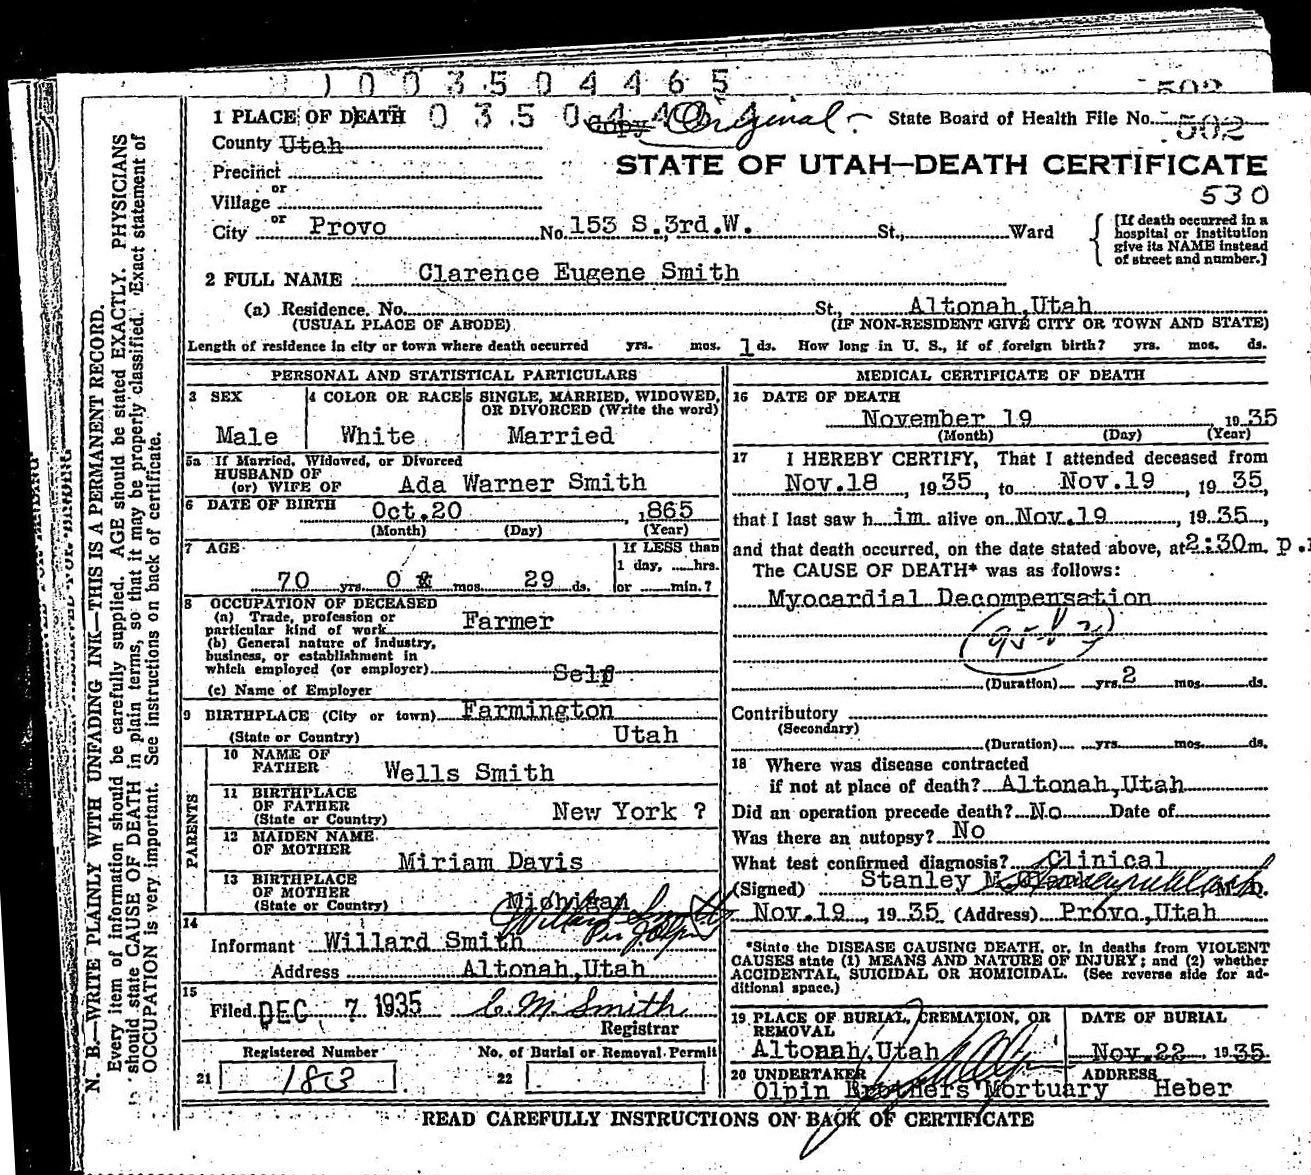 1003504465
502
1 PLACE OF DEATH 0350 Copy Original State Board of Health File No. 502
County Utah
STATE OF UTAH—DEATH CERTIFICATE
Precinct
530
or
Village
or
City Provo No. 153 S. 3rd. W. St., Ward
[If death occurred in a hospital or institution give its NAME instead of street and number.]
2 FULL NAME Clarence Eugene Smith
(a) Residence. No. St., Altonah, Utah
(USUAL PLACE OF ABODE) (IF NON-RESIDENT GIVE CITY OR TOWN AND STATE)
Length of residence in city or town where death occurred yrs. mos. 1 ds. How long in U. S., if of foreign birth? yrs. mos. ds.
PERSONAL AND STATISTICAL PARTICULARS
3 SEX 4 COLOR OR RACE 5 SINGLE, MARRIED, WIDOWED, OR DIVORCED (Write the word)
Male White Married
5a If Married, Widowed, or Divorced
HUSBAND OF
(or) WIFE OF Ada Warner Smith
6 DATE OF BIRTH Oct. 20 , 1865
(Month) (Day) (Year)
7 AGE If LESS than
1 day, hrs.
70 yrs. 0 mos. 29 ds. or min.?
8 OCCUPATION OF DECEASED
(a) Trade, profession or
particular kind of work Farmer
(b) General nature of industry,
business, or establishment in
which employed (or employer) Self
(c) Name of Employer
9 BIRTHPLACE (City or town) Farmington
(State or Country) Utah
PARENTS
10 NAME OF
FATHER Wells Smith
11 BIRTHPLACE
OF FATHER New York ?
(State or Country)
12 MAIDEN NAME
OF MOTHER Miriam Davis
13 BIRTHPLACE
OF MOTHER
(State or Country) Michigan
Willard Smith
14
Informant Willard Smith
Address Altonah, Utah
15
Filed DEC 7 1935 C. M. Smith
Registrar
Registered Number No. of Burial or Removal Permit
21 183 22
MEDICAL CERTIFICATE OF DEATH
16 DATE OF DEATH
November 19 1935
(Month) (Day) (Year)
17 I HEREBY CERTIFY, That I attended deceased from
Nov. 18 , 1935, to Nov. 19 , 1935,
that I last saw h im alive on Nov. 19 , 1935,
and that death occurred, on the date stated above, at 2:30 m. p.
The CAUSE OF DEATH* was as follows:
Myocardial Decompensation
(Duration) yrs. 2 mos. ds.
Contributory
(Secondary)
(Duration) yrs. mos. ds.
18 Where was disease contracted
if not at place of death? Altonah, Utah
Did an operation precede death? No Date of
Was there an autopsy? No
What test confirmed diagnosis? Clinical
(Signed) Stanley M. Clark M. D.
Nov. 19 , 1935 (Address) Provo, Utah
*State the DISEASE CAUSING DEATH, or, in deaths from VIOLENT
CAUSES state (1) MEANS AND NATURE OF INJURY; and (2) whether
ACCIDENTAL, SUICIDAL OR HOMICIDAL. (See reverse side for ad-
ditional space.)
19 PLACE OF BURIAL, CREMATION, OR DATE OF BURIAL
REMOVAL
Altonah, Utah Nov. 22 , 1935
20 UNDERTAKER ADDRESS
Olpin Brothers Mortuary Heber
READ CAREFULLY INSTRUCTIONS ON BACK OF CERTIFICATE
N. B.—WRITE PLAINLY WITH UNFADING INK—THIS IS A PERMANENT RECORD.
Every item of information should be carefully supplied. AGE should be stated EXACTLY. PHYSICIANS
should state CAUSE OF DEATH in plain terms, so that it may be properly classified. Exact statement of
OCCUPATION is very important. See instructions on back of certificate.